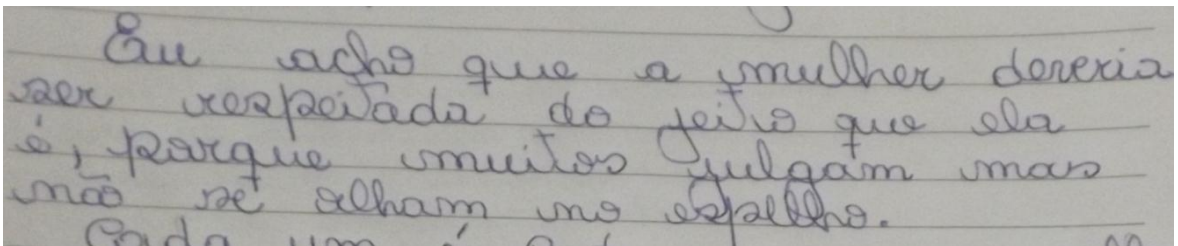 Eu acho que a mulher deveria
ser respeitada do jeito que ela
é, porque muitos julgam mas
não se olham no espelho.
Cada um é